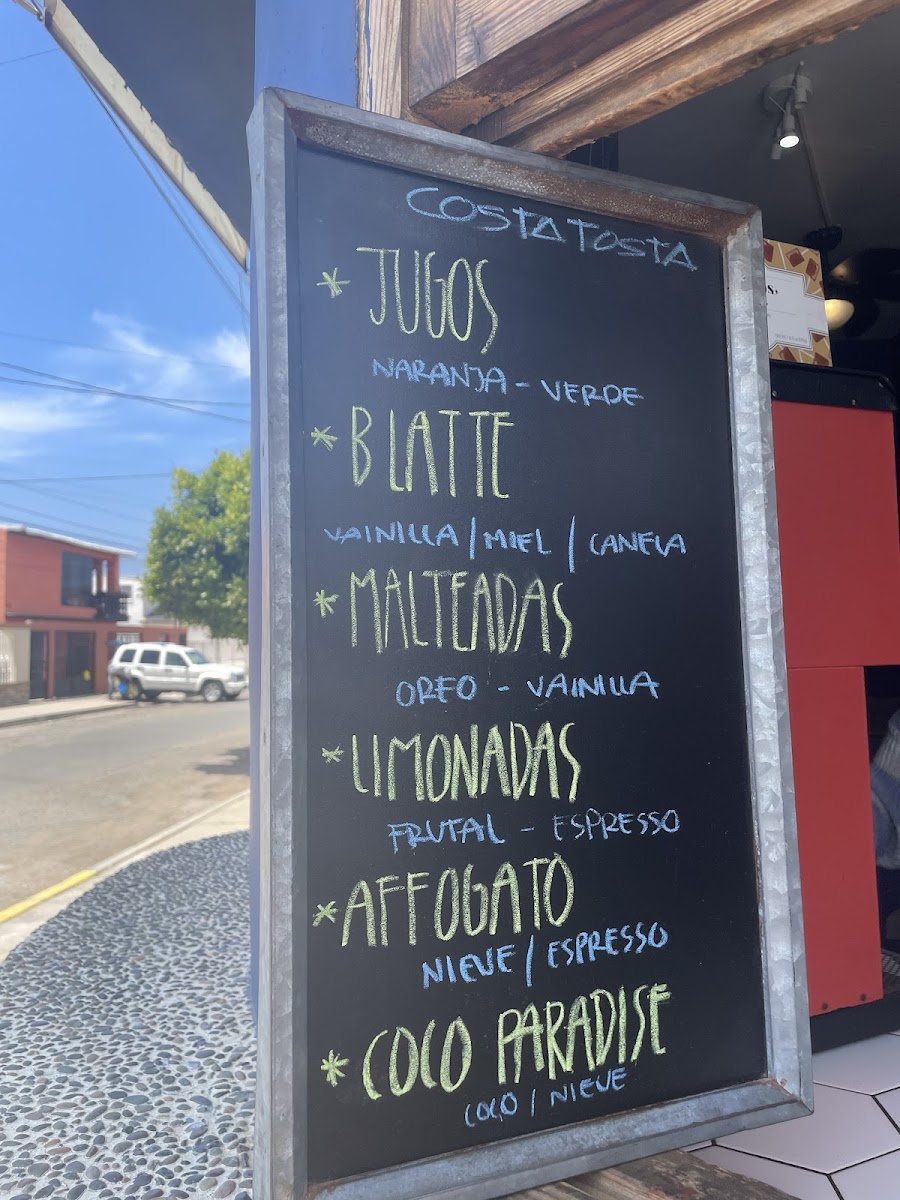 COSTA TOSTA
* JUGOS
NARANJA - VERDE
* B LATTE
VAINILLA / MIEL / CANELA
* MALTEADAS
OREO - VAINILLA
* LIMONADAS
FRUTAL - ESPRESSO
* AFFOGATO
NIEVE / ESPRESSO
* COCO PARADISE
COCO / NIEVE